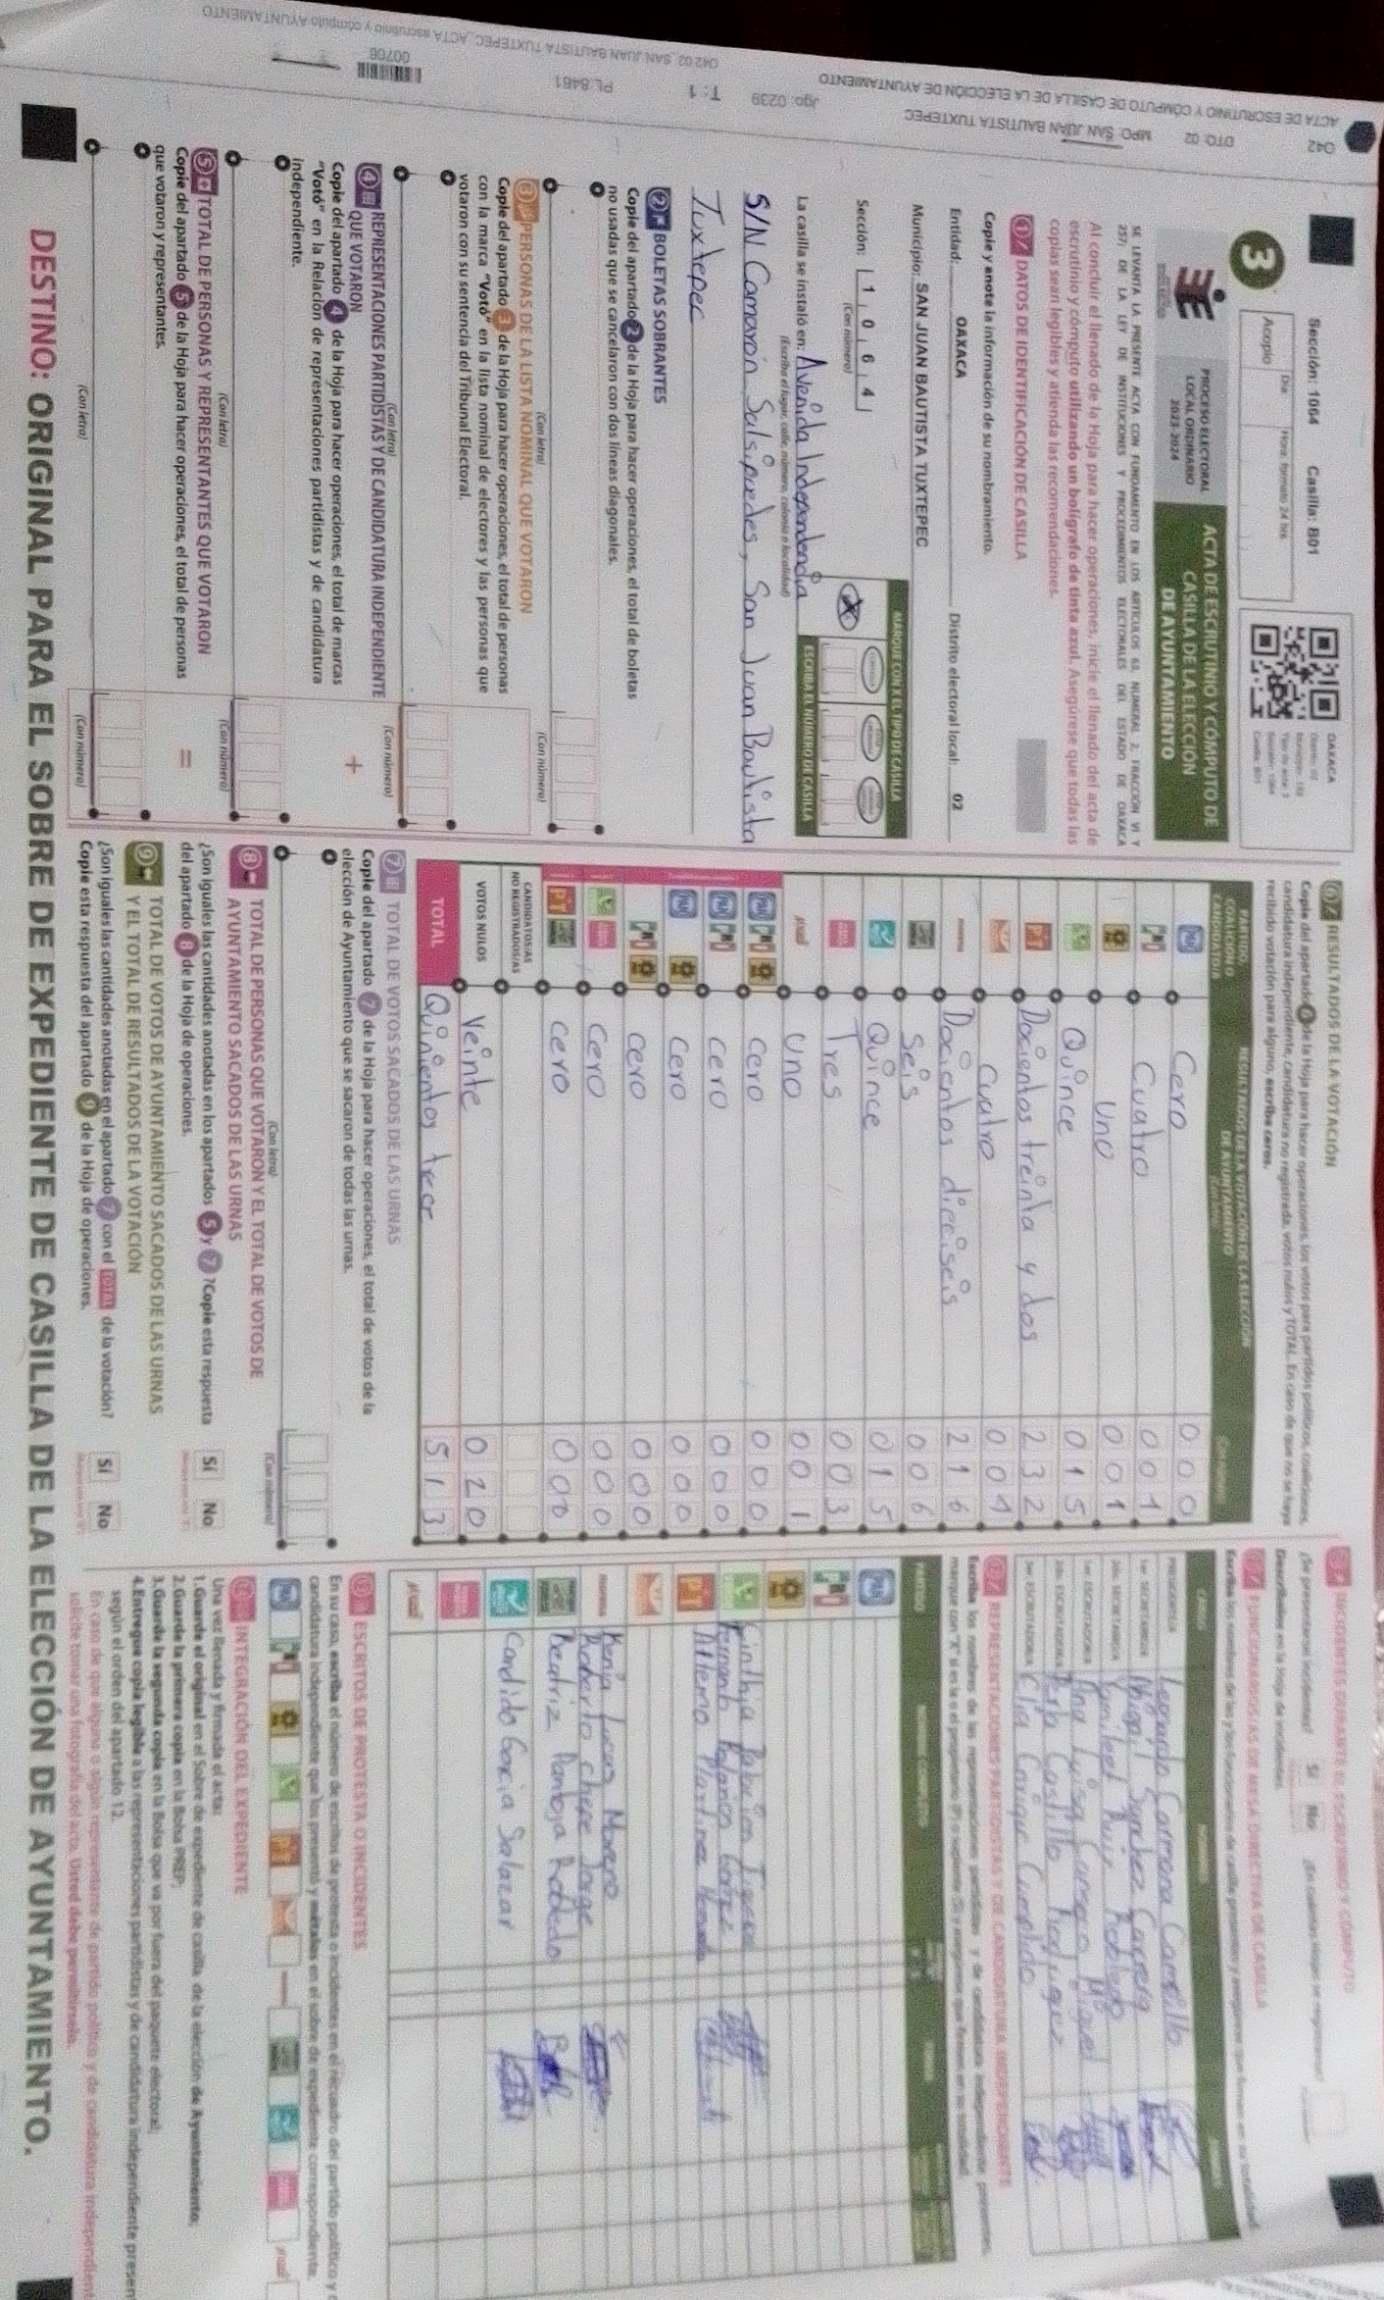 042
DTO: 02
MPO: SAN JUAN BAUTISTA TUXTEPEC
ACTA DE ESCRUTINIO Y CÓMPUTO DE CASILLA DE LA ELECCIÓN DE AYUNTAMIENTO
Jgo: 0239
T: 1
PL:8461
00706
042 02_SAN JUAN BAUTISTA TUXTEPEC_ACTA escrutinio y cómputo AYUNTAMIENTO
Sección: 1064 Casilla: B01
3
Acopio
Día
Hora: formato 24 hrs
OAXACA
PROCESO ELECTORAL
LOCAL ORDINARIO
2023-2024
ACTA DE ESCRUTINIO Y CÓMPUTO DE
CASILLA DE LA ELECCIÓN
DE AYUNTAMIENTO
SE LEVANTA LA PRESENTE ACTA CON FUNDAMENTO EN LOS ARTÍCULOS 63, NUMERAL 2, FRACCIÓN VI Y
257; DE LA LEY DE INSTITUCIONES Y PROCEDIMIENTOS ELECTORALES DEL ESTADO DE OAXACA
Al concluir el llenado de la Hoja para hacer operaciones, inicie el llenado del acta de
escrutinio y cómputo utilizando un bolígrafo de tinta azul. Asegúrese que todas las
copias sean legibles y atienda las recomendaciones.
1 DATOS DE IDENTIFICACIÓN DE CASILLA
Copie y anote la información de su nombramiento.
Entidad: OAXACA Distrito electoral local: 02
Municipio: SAN JUAN BAUTISTA TUXTEPEC
MARQUE CON X EL TIPO DE CASILLA
Sección: 1 0 6 4
(Con número)
X
ESCRIBA EL NÚMERO DE CASILLA
La casilla se instaló en: Avenida Independencia
(Escriba el lugar, calle, número, colonia o localidad)
S/N Camaron Salsipuedes, San Juan Bautista
Tuxtepec
2 BOLETAS SOBRANTES
Copie del apartado 2 de la Hoja para hacer operaciones, el total de boletas
no usadas que se cancelaron con dos líneas diagonales.
(Con letra) (Con número)
3 PERSONAS DE LA LISTA NOMINAL QUE VOTARON
Copie del apartado 3 de la Hoja para hacer operaciones, el total de personas
con la marca "Votó" en la lista nominal de electores y las personas que
votaron con su sentencia del Tribunal Electoral.
(Con letra) (Con número)
4 REPRESENTACIONES PARTIDISTAS Y DE CANDIDATURA INDEPENDIENTE
QUE VOTARON
Copie del apartado 4 de la Hoja para hacer operaciones, el total de marcas
"Votó" en la Relación de representaciones partidistas y de candidatura
independiente.
+
(Con letra) (Con número)
5 TOTAL DE PERSONAS Y REPRESENTANTES QUE VOTARON
Copie del apartado 5 de la Hoja para hacer operaciones, el total de personas
que votaron y representantes.
=
(Con letra) (Con número)
6 RESULTADOS DE LA VOTACIÓN
Copie del apartado 6 de la Hoja para hacer operaciones, los votos para partidos políticos, coaliciones,
candidatura independiente, candidatura no registrada, votos nulos y TOTAL. En caso de que no se haya
recibido votación para alguno, escriba ceros.
PARTIDO,
COALICIÓN O
CANDIDATO/A
RESULTADOS DE LA VOTACIÓN DE LA ELECCIÓN
DE AYUNTAMIENTO
PAN Cero 000
PRI Cuatro 004
Uno 001
Quince 015
PT Docientos treinta y dos 232
Cuatro 004
morena Docientos dieciseis 216
Seis 006
Quince 015
Tres 003
Uno 001
PAN PRI cero 000
PAN PRI cero 000
PAN cero 000
PRI cero 000
cero 000
PT cero 000
CANDIDATOS/AS
NO REGISTRADOS/AS
VOTOS NULOS Veinte 020
TOTAL Quinientos trece 513
7 TOTAL DE VOTOS SACADOS DE LAS URNAS
Copie del apartado 7 de la Hoja para hacer operaciones, el total de votos de la
elección de Ayuntamiento que se sacaron de todas las urnas.
(Con letra) (Con número)
8 TOTAL DE PERSONAS QUE VOTARON Y EL TOTAL DE VOTOS DE
AYUNTAMIENTO SACADOS DE LAS URNAS
¿Son iguales las cantidades anotadas en los apartados 5 y 7 ? Copie esta respuesta
del apartado 8 de la Hoja de operaciones.
Sí No
9 TOTAL DE VOTOS DE AYUNTAMIENTO SACADOS DE LAS URNAS
Y EL TOTAL DE RESULTADOS DE LA VOTACIÓN
¿Son iguales las cantidades anotadas en el apartado 7 con el TOTAL de la votación?
Copie esta respuesta del apartado 9 de la Hoja de operaciones.
Sí No
INCIDENTES DURANTE EL ESCRUTINIO Y CÓMPUTO
¿Se presentaron incidentes? Sí No
Descríbalos en la hoja de incidentes.
FUNCIONARIOS/AS DE MESA DIRECTIVA DE CASILLA
Leonardo Carmona Candillo
Sanchez
Ruiz Robledo
Ana Luisa
Castillo Rodriguez
REPRESENTACIONES PARTIDISTAS Y DE CANDIDATURA INDEPENDIENTE
PARTIDO NOMBRE COMPLETO
PAN
PRI
PT
Martinez
morena Kenia Lucas Moreno
Roberto Chepe Jorge
Beatriz Pantoja Robledo
Candido Garcia Salazar
ESCRITOS DE PROTESTA O INCIDENTES
En su caso, escriba el número de escritos de protesta o incidentes en el recuadro del partido político y
candidatura independiente que los presentó y métalos en el sobre de expediente correspondiente.
INTEGRACIÓN DEL EXPEDIENTE
Una vez llenada y firmada el acta:
1. Guarde el original en el Sobre de expediente de casilla de la elección de Ayuntamiento;
2. Guarde la primera copia en la Bolsa PREP;
3. Guarde la segunda copia en la Bolsa que va por fuera del paquete electoral;
4. Entregue copia legible a las representaciones partidistas y de candidatura independiente
según el orden del apartado 12.
En caso de que alguna o algún representante de partido político y de candidatura
solicite tomar una fotografía del acta, Usted debe permitírselo.
DESTINO: ORIGINAL PARA EL SOBRE DE EXPEDIENTE DE CASILLA DE LA ELECCIÓN DE AYUNTAMIENTO.